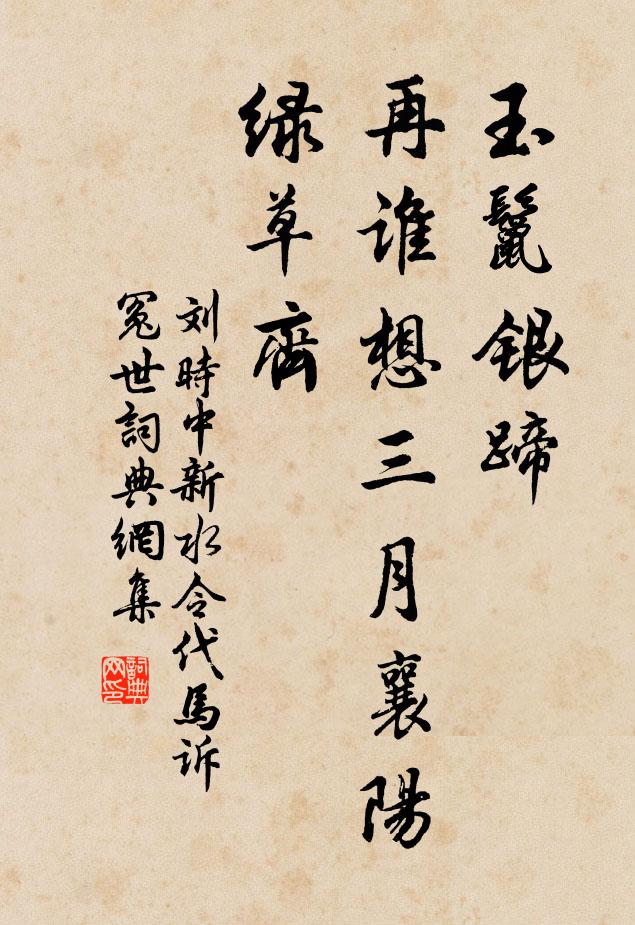 玉鬣银蹄
再谁想三月襄陽
绿草齊
刘時中新水令代馬诉
冤世詞典網集
詞典网印